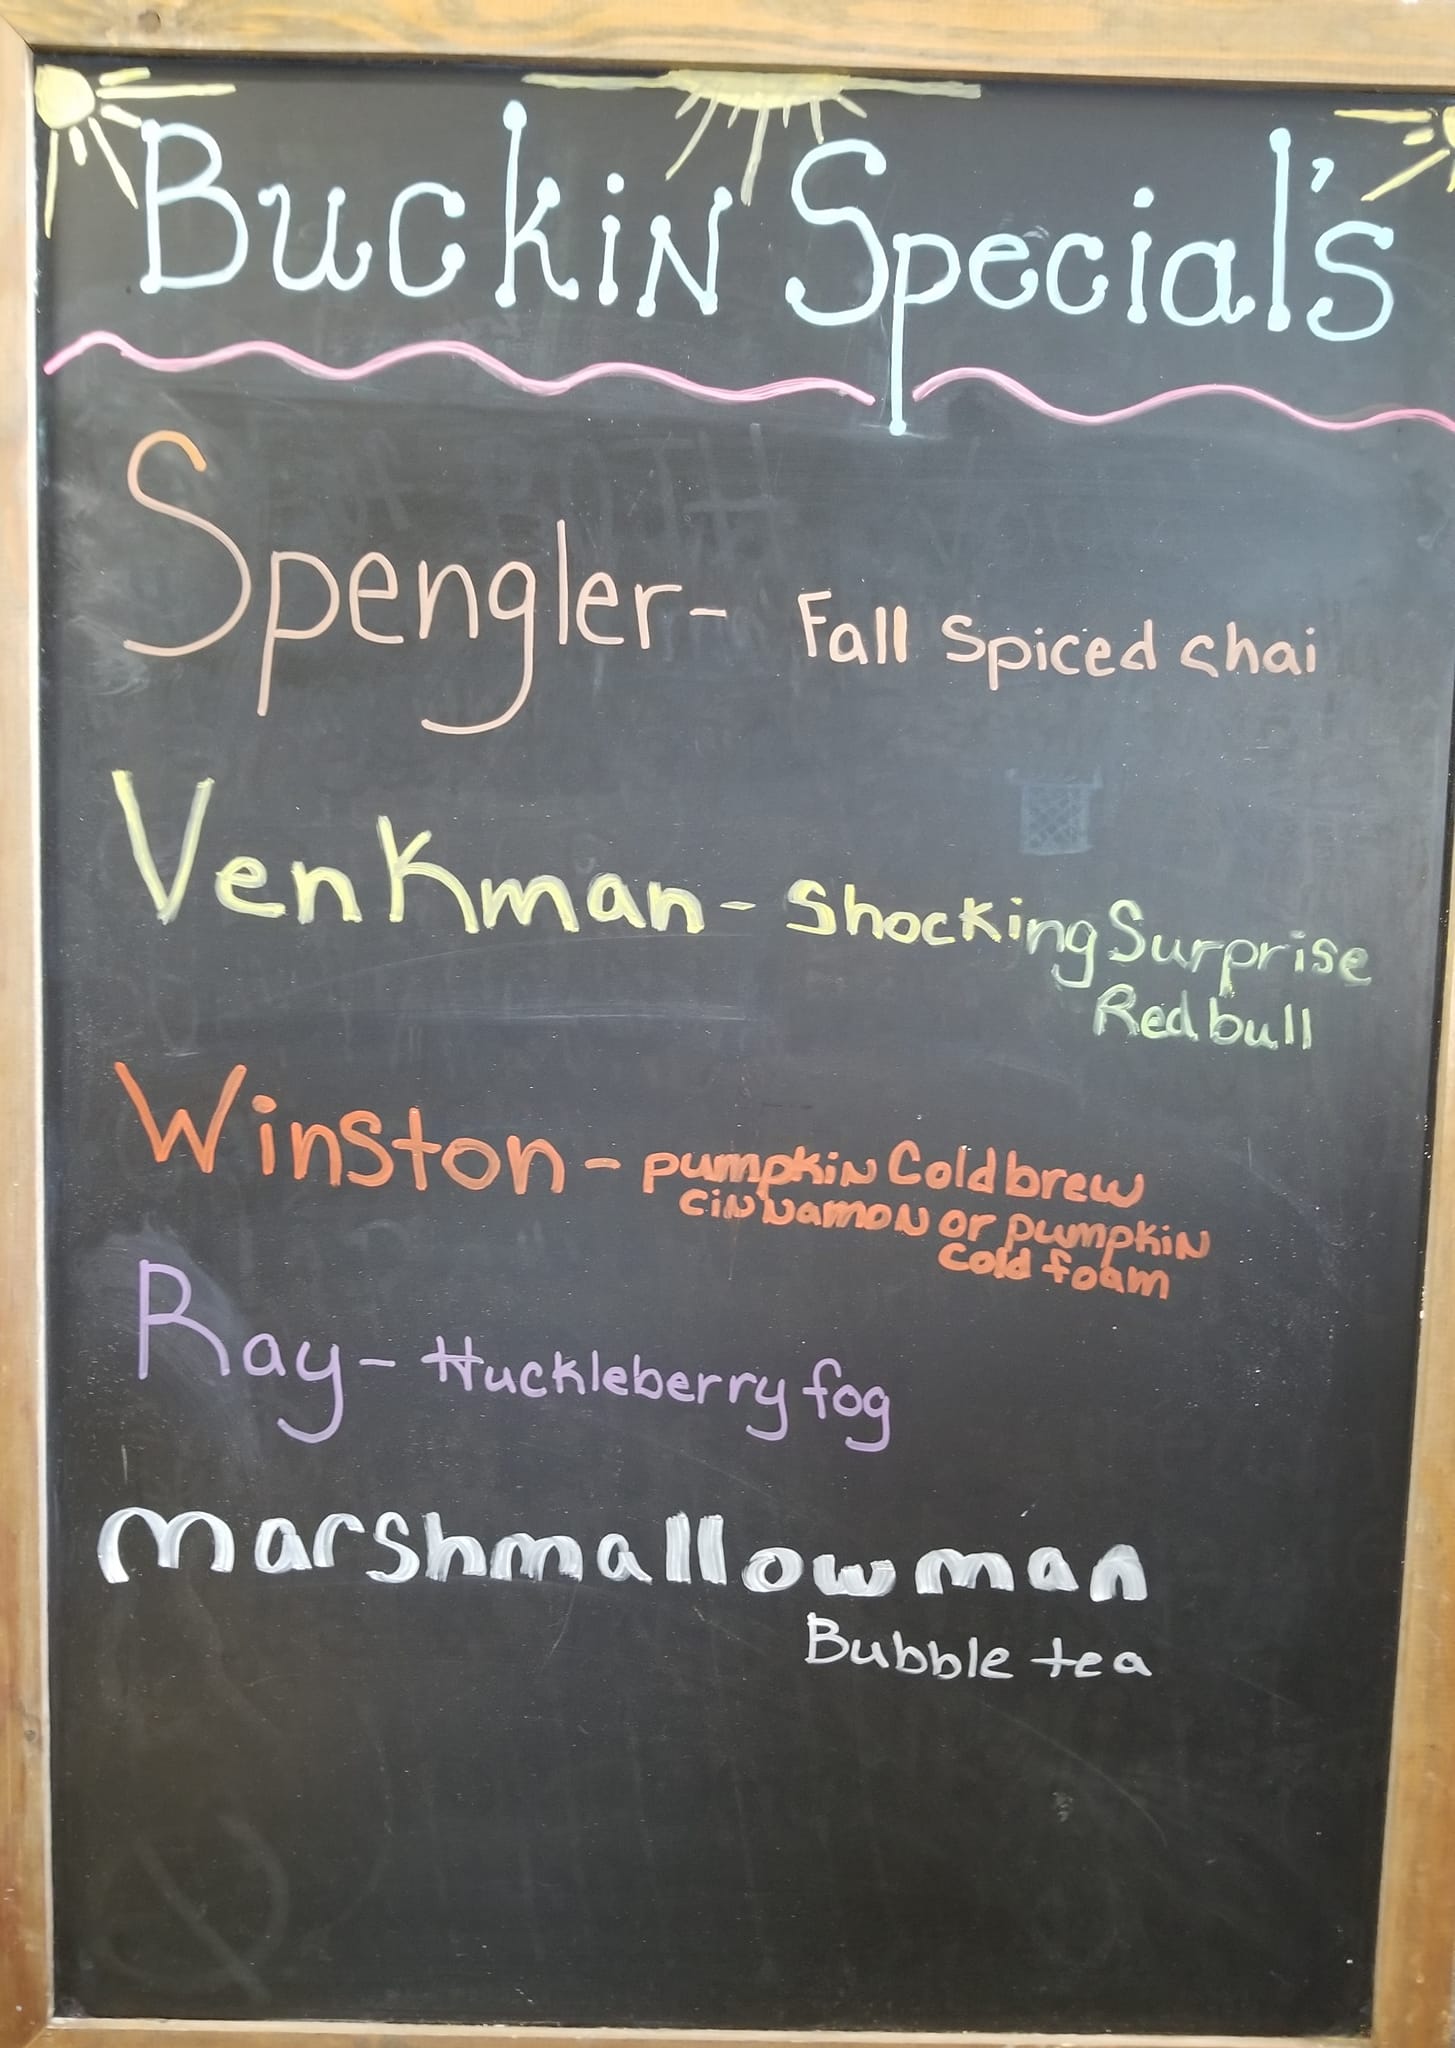 Buckin Special's
Spengler- Fall Spiced chai
Venkman - Shocking Surprise
Redbull
Winston - pumpkin Cold brew
cinnamon or pumpkin
Cold foam
Ray - Huckleberry fog
marshmallow man
Bubble tea